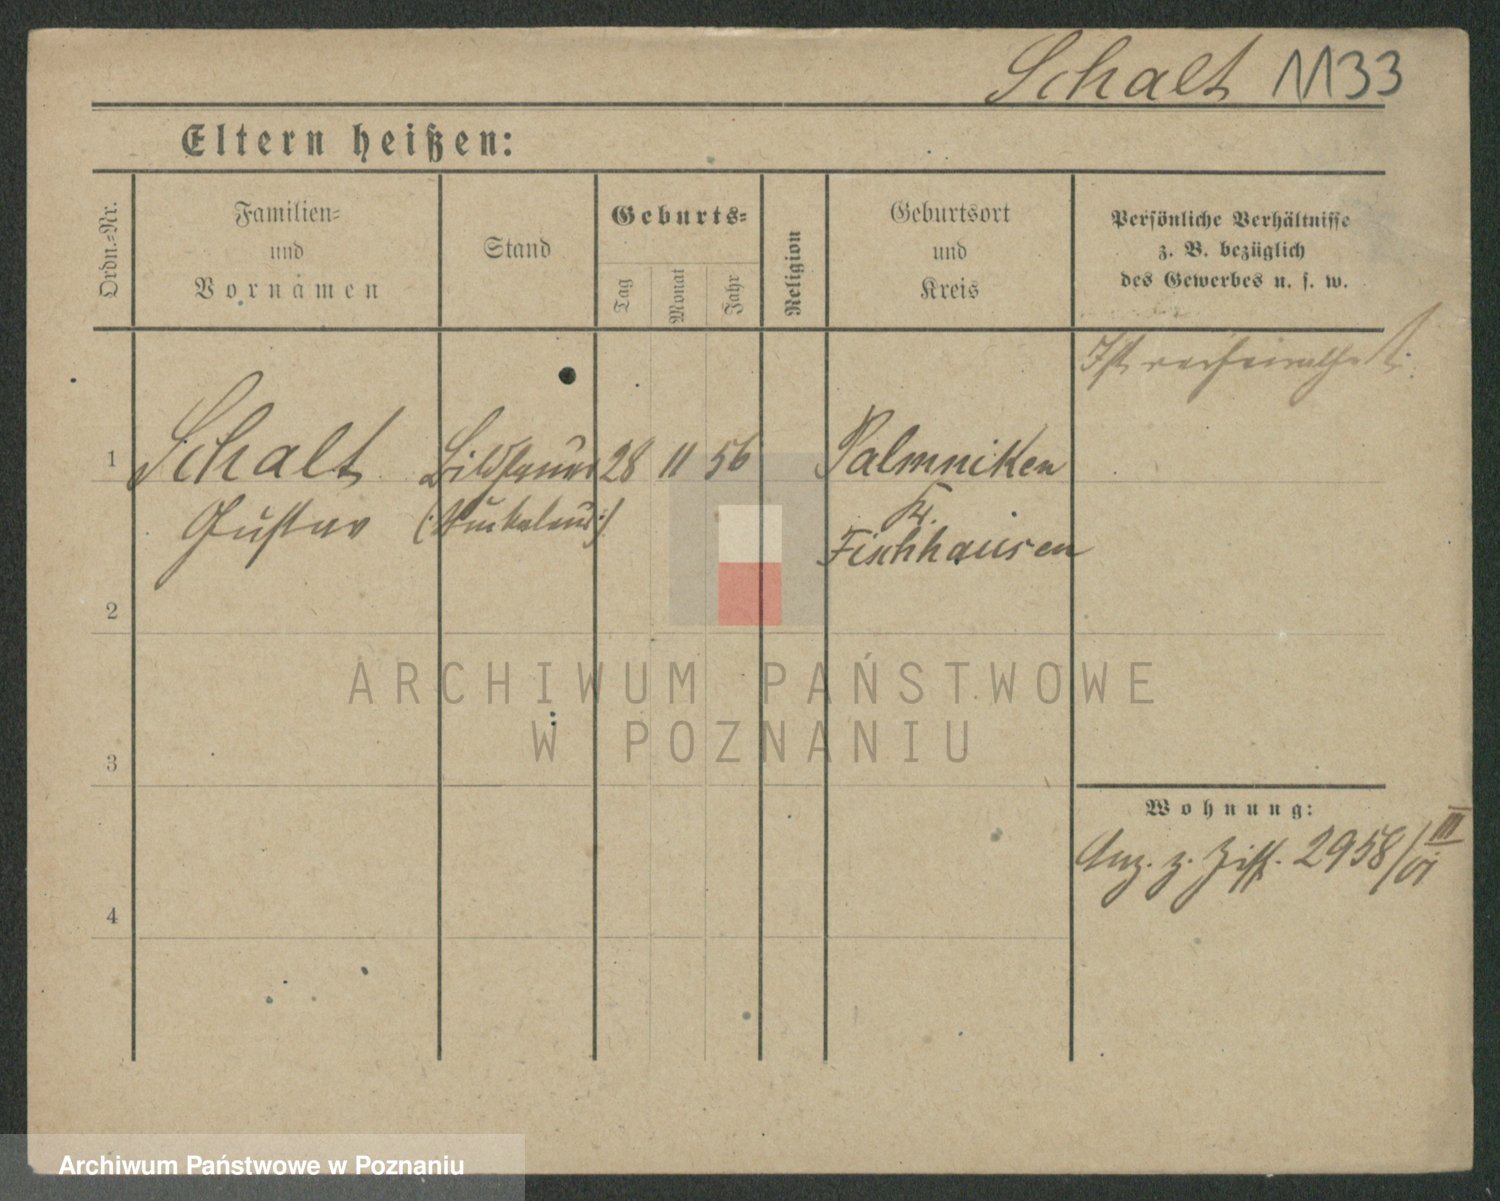 Schalt 1133
Eltern heißen:
Ordn.=Nr.
Familien=
und
Vornamen
Stand
Geburts=
Tag
Monat
Jahr
Religion
Geburtsort
und
Kreis
Persönliche Verhältnisse
z. B. bezüglich
des Gewerbes u. s. w.
Ist verheirathet.
1 Schalt Bildhauer 28 11 56 Palmniken
Gustav
Kr.
Fischhausen
2
ARCHIWUM PAŃSTWOWE
W POZNANIU
3
Wohnung:
Anz. z. 2958/III/VI
4
Archiwum Państwowe w Poznaniu